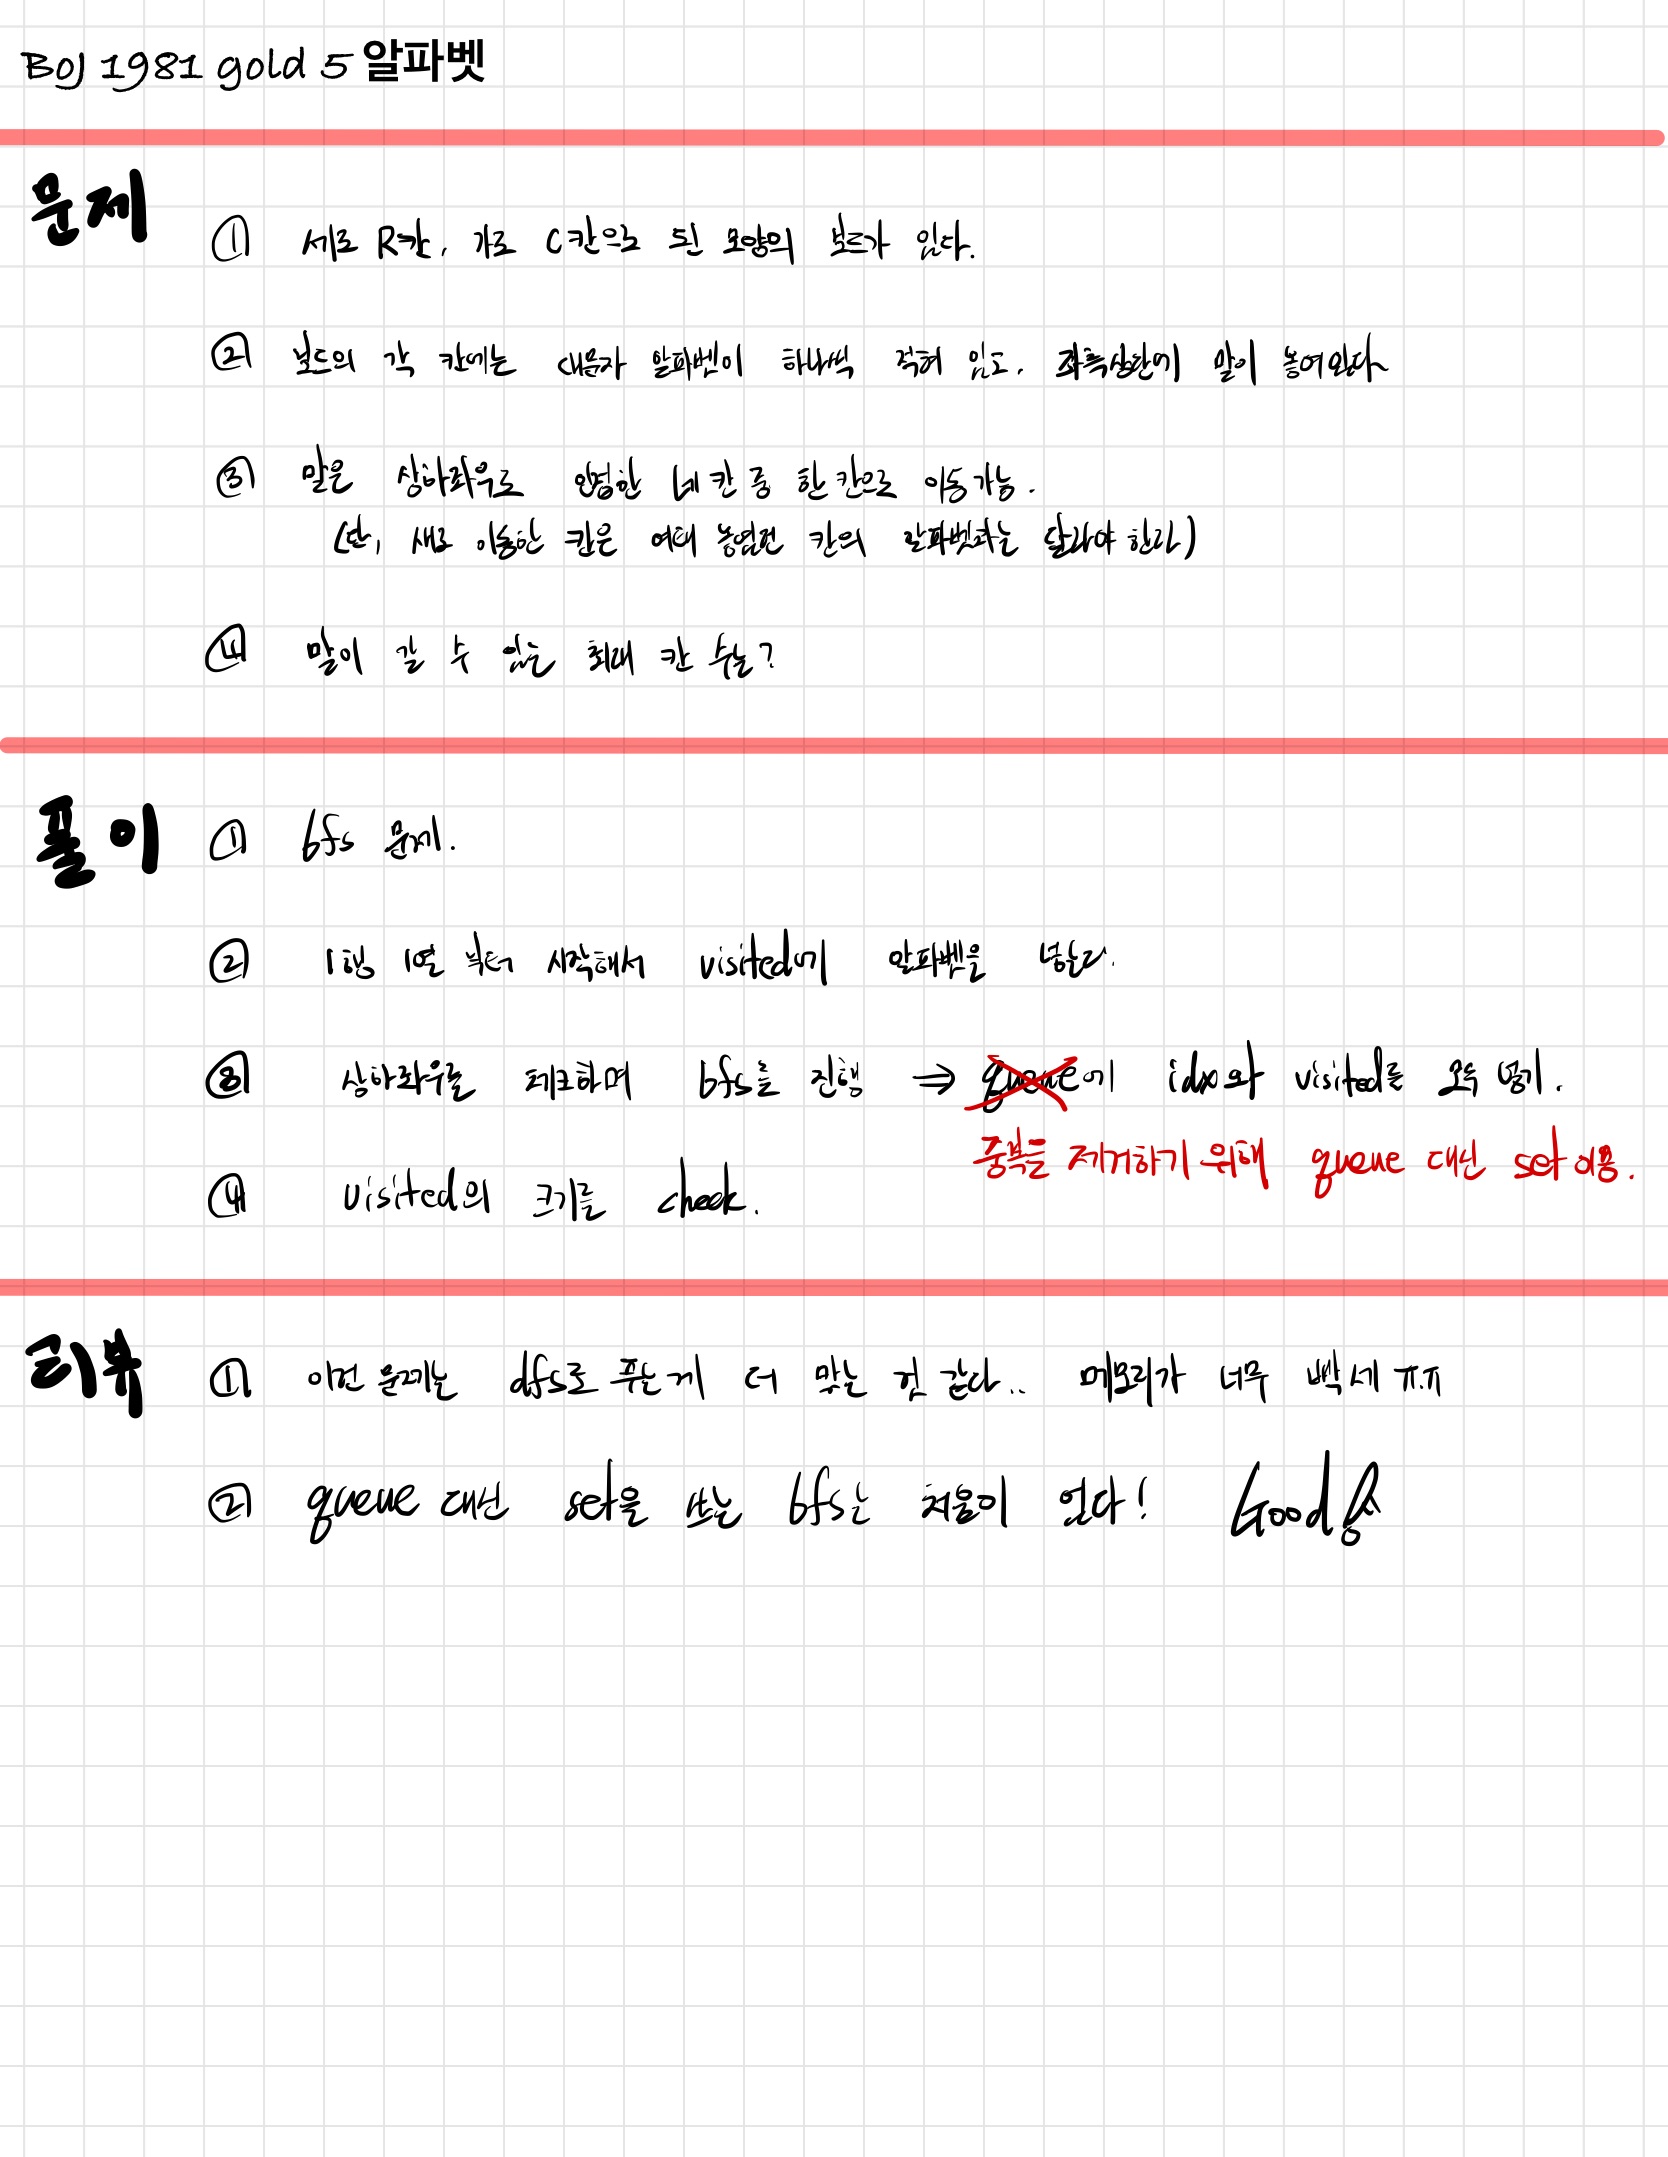 BOJ 1981 gold 5 알파벳
문제
① 세로 R칸, 가로 C칸으로 된 모양의 보드가 있다.
② 보드의 각 칸에는 대문자 알파벳이 하나씩 적혀 있고, 좌측상단에 말이 놓여있다
③ 말은 상하좌우로 인접한 네 칸 중 한 칸으로 이동가능.
(단, 새로 이동한 칸은 여태 놓였던 칸의 알파벳과는 달라야 한다)
④ 말이 갈 수 있는 최대 칸 수는?
풀이
① bfs 문제.
② 1행 1열 부터 시작해서 visited에 알파벳을 넣는다.
③ 상하좌우를 체크하며 bfs를 진행 ⇒ queue에 idx와 visited를 모두 넣기.
중복을 제거하기 위해 queue 대신 set 이용.
④ visited의 크기를 check.
리뷰
① 이런 문제는 dfs로 푸는게 더 맞는 것 같다.. 메모리가 너무 빡세 ㅠ.ㅠ
② queue 대신 set을 쓰는 bfs는 처음이었다! Good